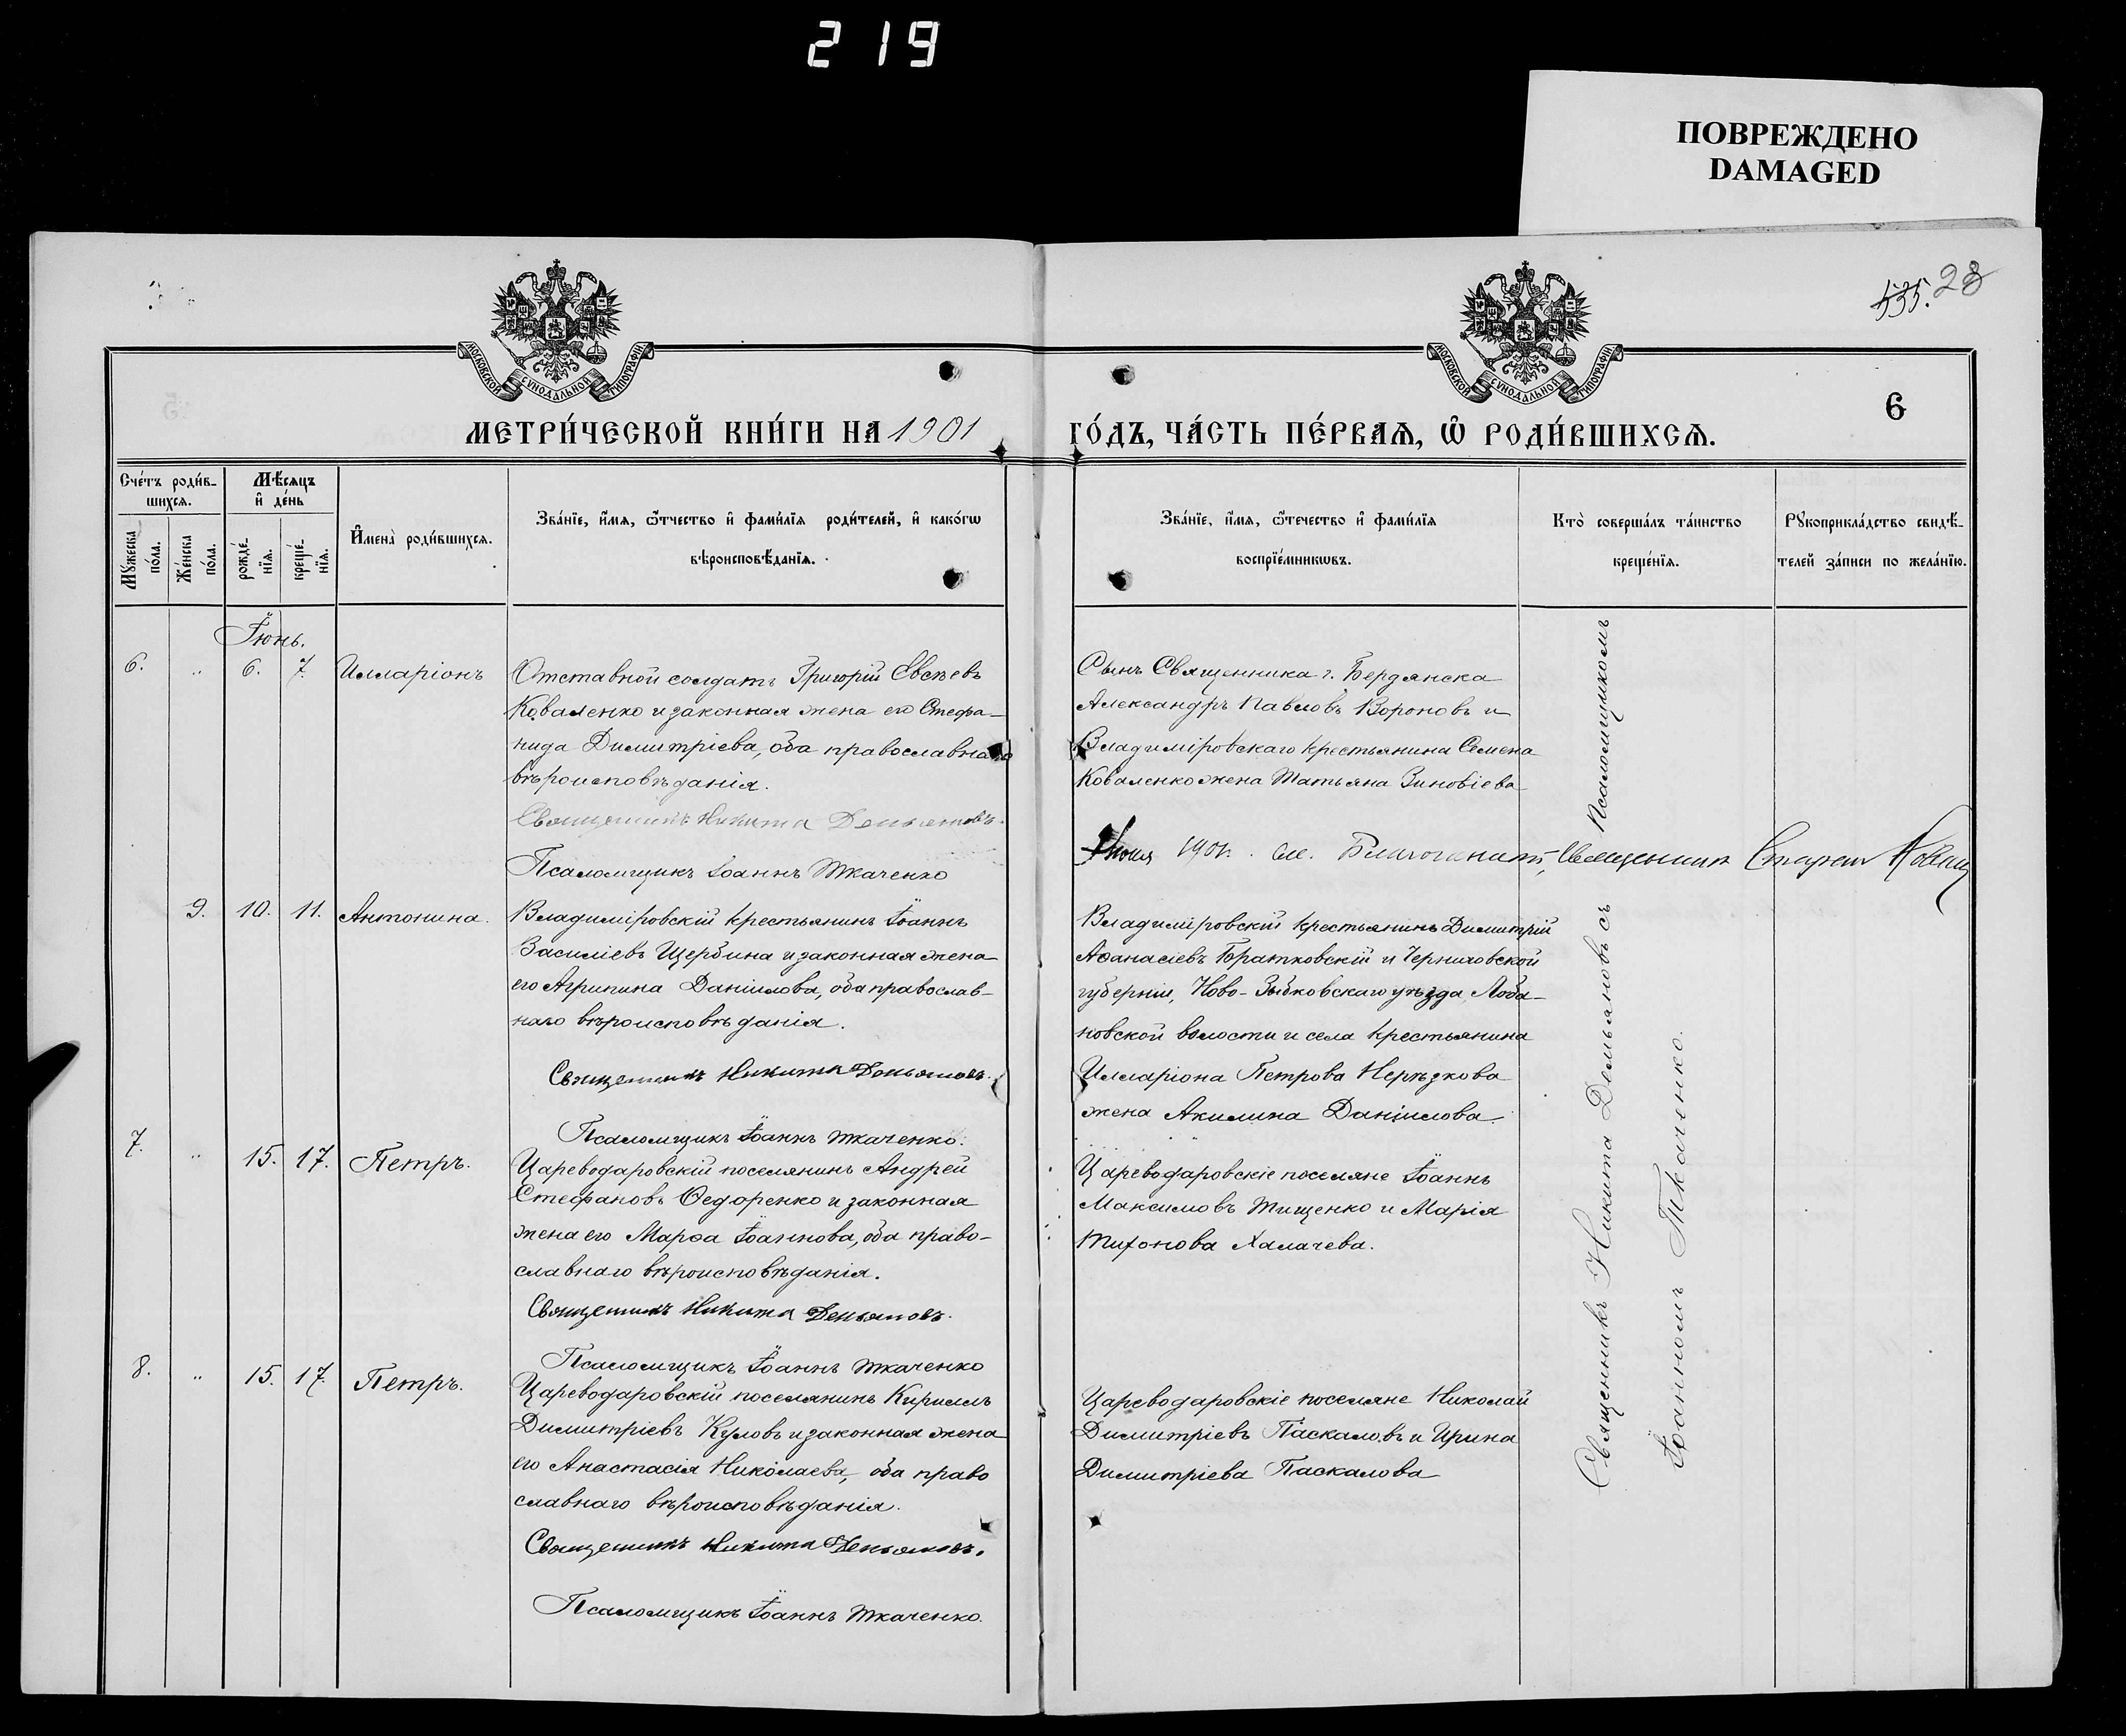 219
ПОВРЕЖДЕНО
DAMAGED
535. 28
МОСКОВСКОЙ СѴНОДАЛЬНОЙ ТИПОГРАФІИ
МОСКОВСКОЙ СѴНОДАЛЬНОЙ ТИПОГРАФІИ
6
МЕТРИ́ЧЕСКОЙ КНИ́ГИ НА 1901 ГО́ДЪ, ЧА́СТЬ ПЕ́РВАѦ, Ѽ РОДИ́ВШИХСѦ.
Сче́тъ роди́в-
шихсѧ.
Мѣ́сѧцъ
и҆ де́нь
Мꙋ́жеска
по́ла.
Же́нска
по́ла.
рожде́-
нїѧ.
креще́-
нїѧ.
И҆мена̀ роди́вшихсѧ.
Зва́нїе, и҆́мѧ, ѻ҆́тчество и҆ фами́лїѧ роди́телей, и҆ како́гѡ
вѣроисповѣ́данїѧ.
Зва́нїе, и҆́мѧ, ѻ҆́течество и҆ фами́лїѧ
воспрїе́мникѡвъ.
Кто̀ соверша́лъ та́инство
креще́нїѧ.
Рꙋкоприкла́дство свидѣ́-
телей за́писи по жела́нїю.
Іюнь.
6. „ 6. 7. Илларіонъ
Отставной солдатъ Григорій Евсѣевъ
Коваленко и законная жена его Стефа-
нида Димитріева, оба православнаго
вѣроисповѣданія.
Священникъ Никита Демьяновъ.
Псаломщикъ Іоаннъ Ткаченко
Сынъ Священника г. Бердянска
Александръ Павловъ Вороновъ и
Владиміровскаго крестьянина Семена
Коваленко жена Татьяна Зиновіева
Іюня 1901. Благочинный, Священникъ
9. 10. 11. Антонина.
Владиміровскій крестьянинъ Іоаннъ
Василіевъ Щербина и законная жена
его Агрипина Даніилова, оба православ-
наго вѣроисповѣданія.
Священникъ Никита Демьяновъ.
Псаломщикъ Іоаннъ Ткаченко.
Владиміровскій крестьянинъ Димитрій
Аѳанасіевъ Братковскій и Черниховской
губерніи, Ново-Зыбковскаго уѣзда, Лоба-
новской волости и села крестьянина
Илларіона Петрова Нерѣзкова
жена Акилина Даніилова.
7. „ 15. 17. Петръ.
Цареводаровскій поселянинъ Андрей
Стефановъ Ѳедоренко и законная
жена его Марѳа Іоаннова, оба право-
славнаго вѣроисповѣданія.
Священникъ Никита Демьяновъ.
Псаломщикъ Іоаннъ Ткаченко
Цареводаровскіе поселяне Іоаннъ
Максимовъ Тищенко и Марія
Тихонова Халачева.
8. „ 15. 17. Петръ.
Цареводаровскій поселянинъ Кириллъ
Димитріевъ Куловъ и законная жена
его Анастасія Николаева, оба право
славнаго вѣроисповѣданія.
Священникъ Никита Демьяновъ.
Псаломщикъ Іоаннъ Ткаченко.
Цареводаровскіе поселяне Николай
Димитріевъ Паскаловъ и Ирина
Димитріева Паскалова
Священникъ Никита Демьяновъ съ Псаломщикомъ
Іоанномъ Ткаченко.